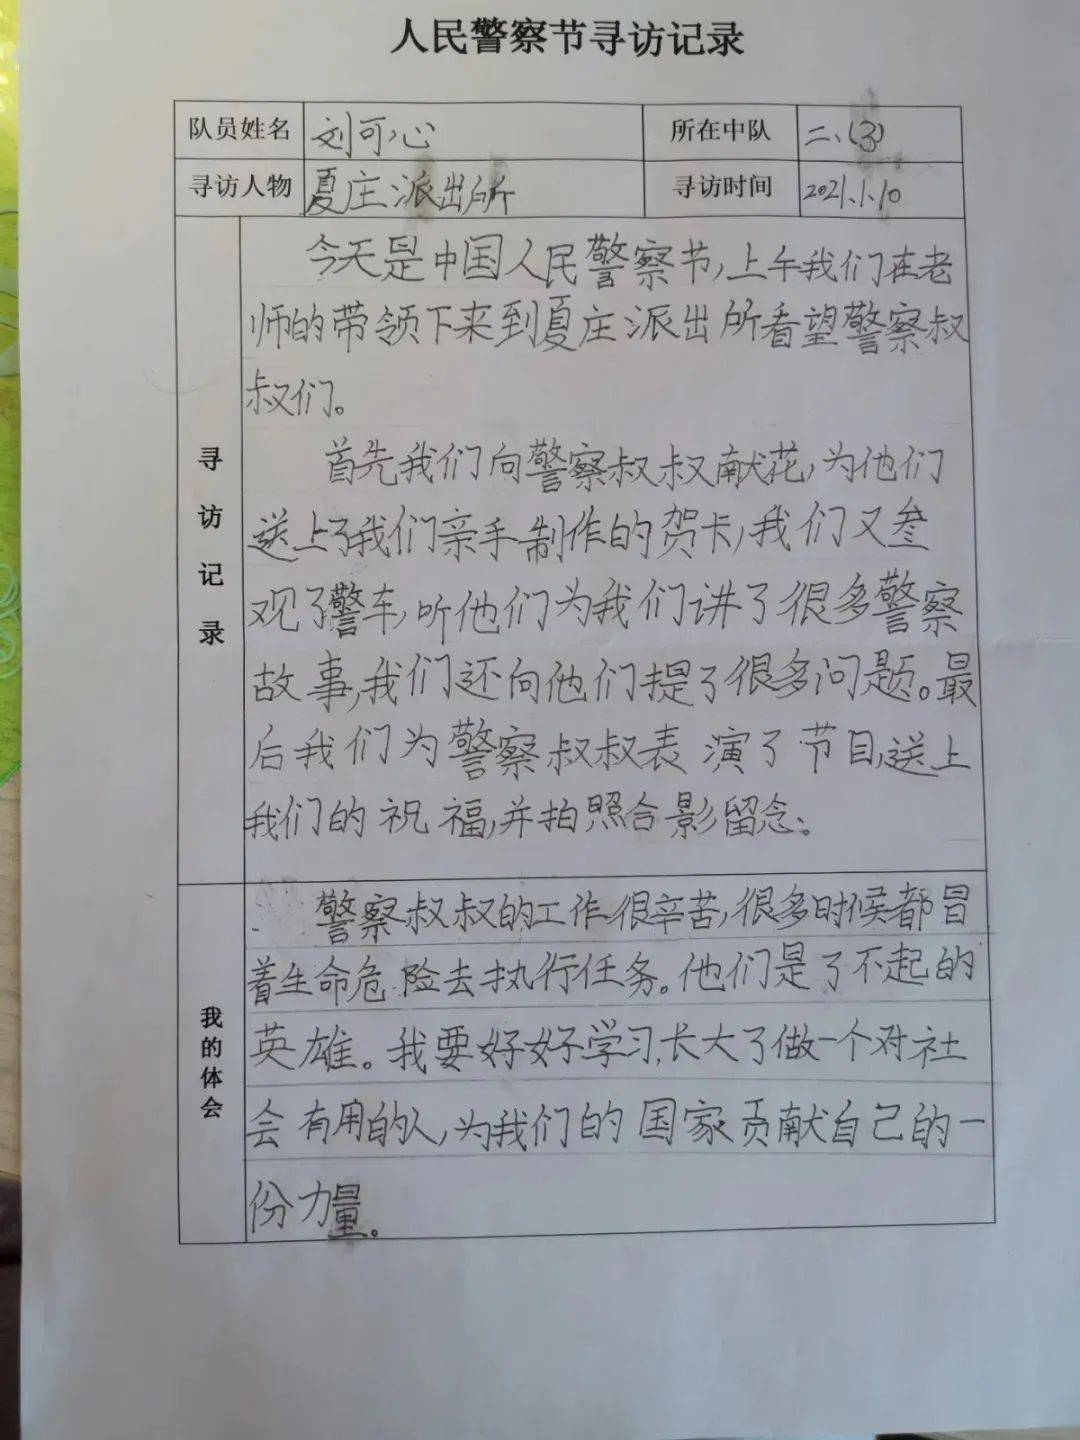 人民警察节寻访记录
队员姓名 刘可心 所在中队 二、(3)
寻访人物 夏庄派出所 寻访时间 2021.1.10
寻访记录
今天是中国人民警察节,上午我们在老
师的带领下来到夏庄派出所看望警察叔
叔们。
首先我们向警察叔叔献花,为他们
送上了我们亲手制作的贺卡,我们又叁
观了警车,听他们为我们讲了很多警察
故事,我们还向他们提了很多问题。最
后我们为警察叔叔表演了节目,送上
我们的祝福,并拍照合影留念。
我的体会
警察叔叔的工作很辛苦,很多时候都冒
着生命危险去执行任务。他们是了不起的
英雄。我要好好学习,长大了做一个对社
会有用的人,为我们的国家贡献自己的一
份力量。